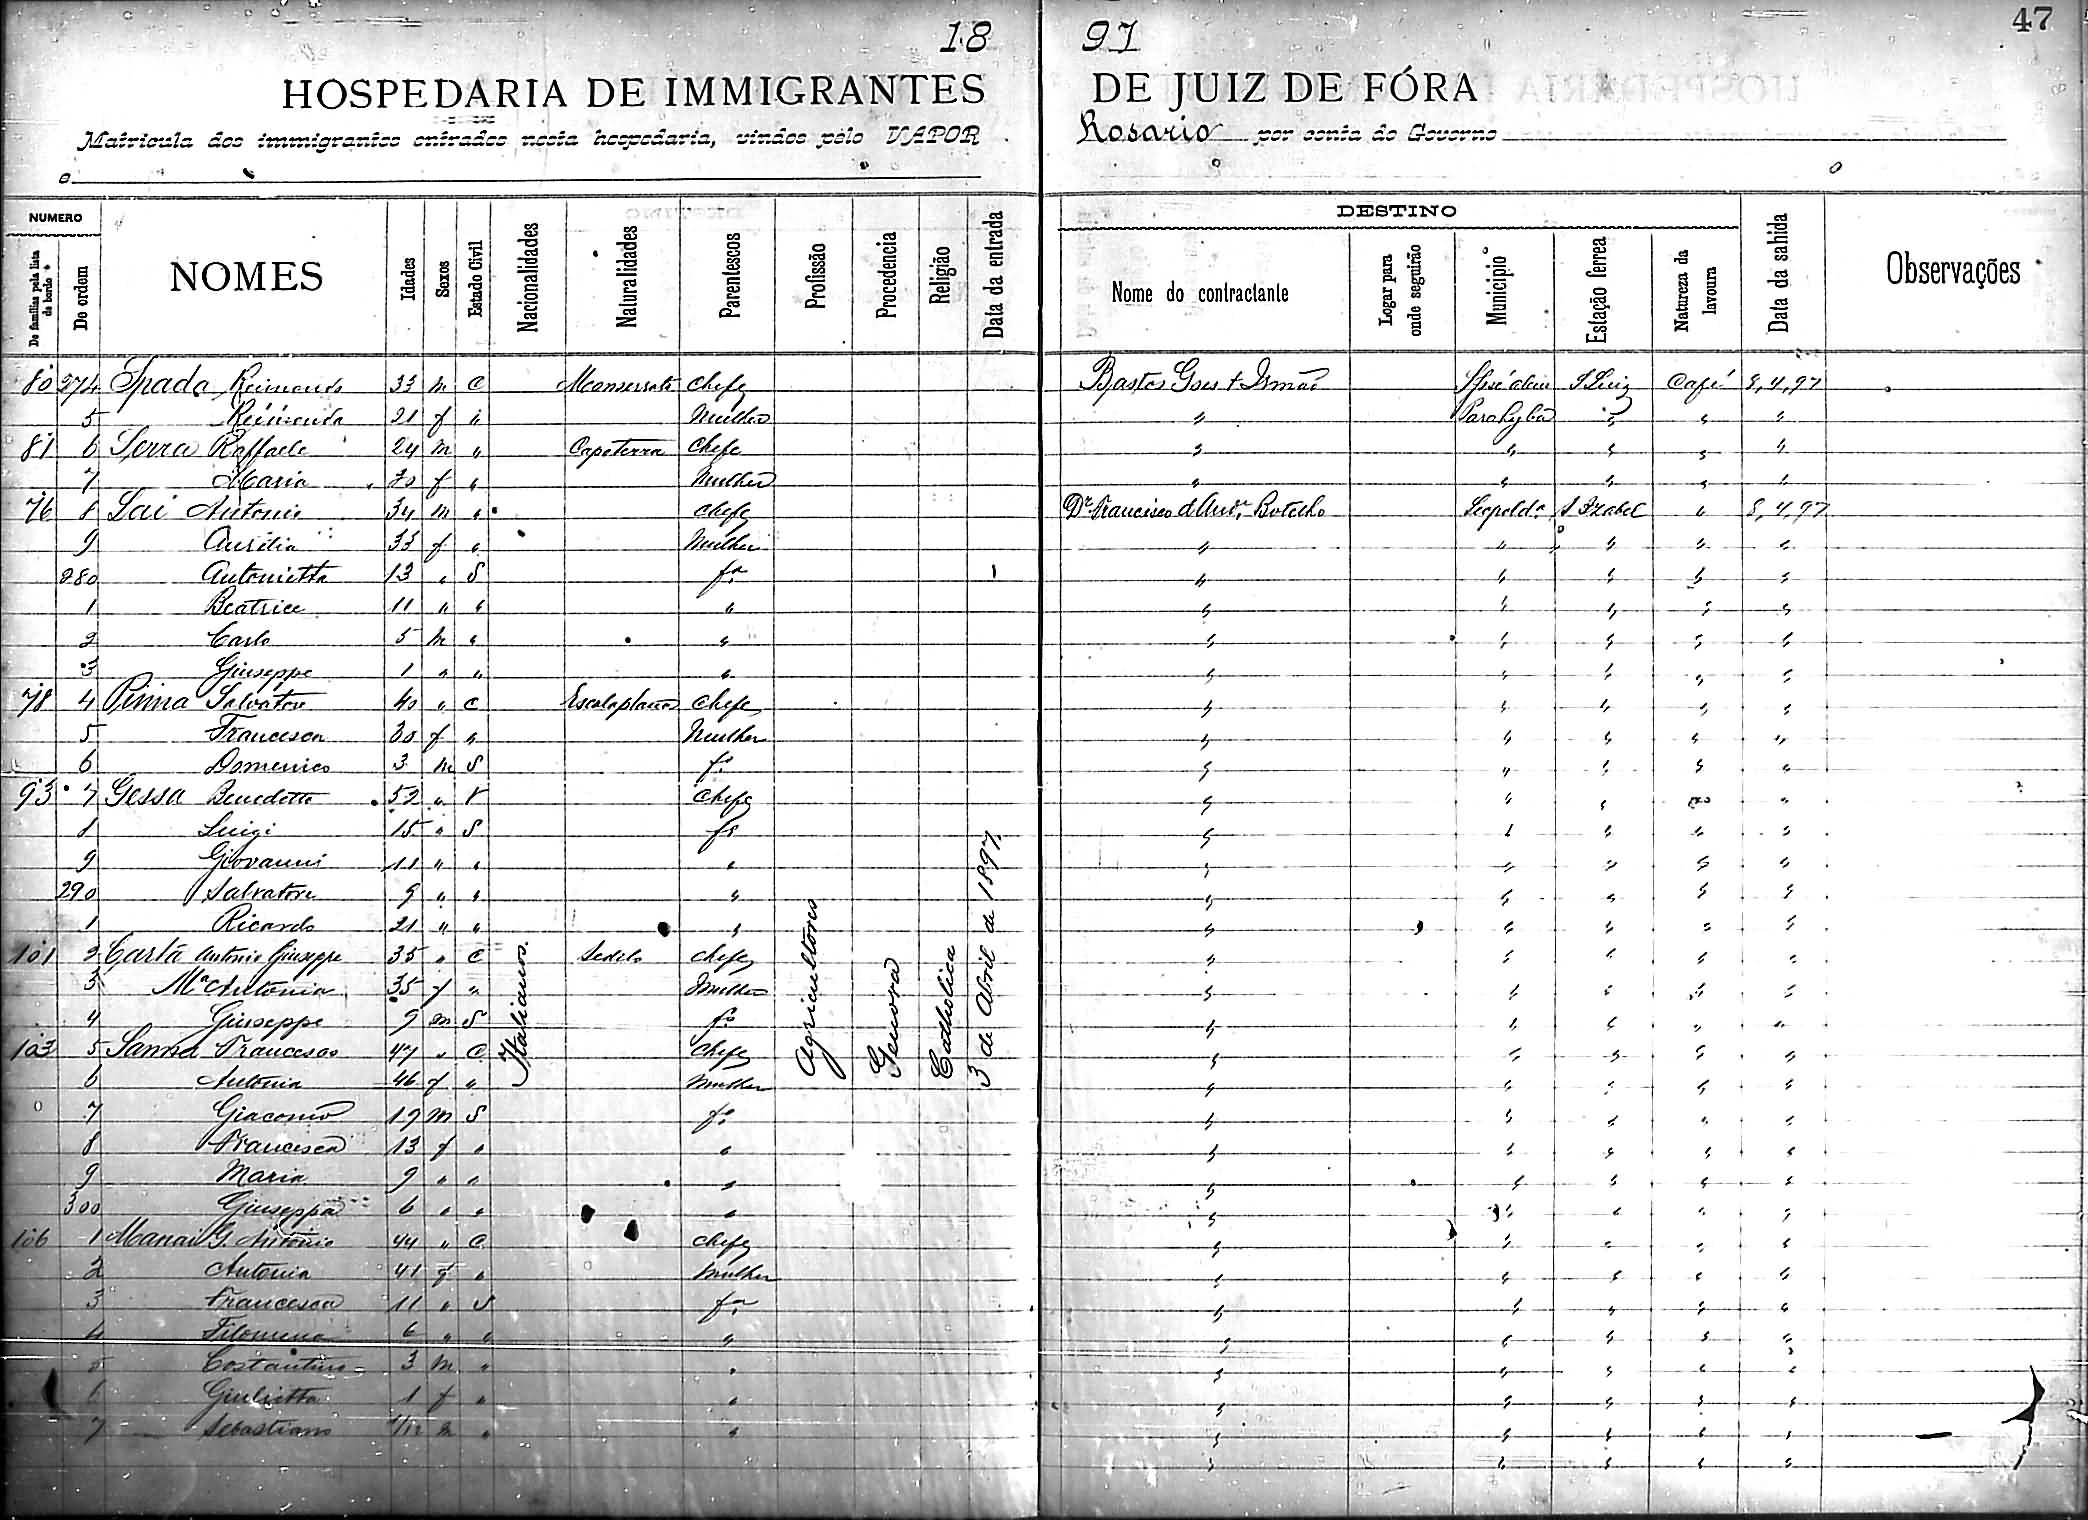 18 97 47
HOSPEDARIA DE IMMIGRANTES DE JUIZ DE FÓRA
Matricula dos immigrantes entrados nesta hospedaria, vindos pelo VAPOR Rosario por conta do Governo
NUMERO DESTINO
De familias pela lista de bordo De ordem NOMES Idades Sexos Estado Civil Nacionalidades Naturalidades Parentescos Profissão Procedencia Religião Data da entrada Nome do contractante Logar para onde seguirão Municipio Estação ferrea Natureza da lavoura Data da sahida Observações
80 274 Spada Reimondo 33 m C Monserrato Chefe Bastos Goes & Irmão S José d'alem S Luiz Café 8,4,97
5 Reimonda 21 f " Mulher " Parahyba " " "
81 6 Serra Raffaele 24 m " Capoterra Chefe " " " " "
7 Maria 20 f " Mulher " " " " "
76 8 Lai Antonio 34 m " Chefe Dr Francisco d'And.ª Botelho Leopold.ª S Izabel " 8,4,97
9 Aurelia 33 f " Mulher " " " " "
280 Antonietta 13 " S fª " " " " "
1 Beatrice 11 " " " " " " " "
2 Carlo 5 m " " " " " " "
3 Giuseppe 1 " " " " " " " "
78 4 Pinna Salvatore 40 " C Escalaplano Chefe " " " " "
5 Francesca 30 f " Mulher " " " " "
6 Domenico 3 m S fº " " " " "
93 7 Gessa Benedetto 52 " V Chefe " " " "
8 Luigi 15 " S fº " " " " "
9 Giovanni 11 " " " " " " " "
290 Salvatore 9 " " " " " " " "
1 Ricardo 21 " " " " " " " "
101 2 Carta Antonio Giuseppe 35 " C Sedilo Chefe " " " " "
3 Mª Antonia 35 f " Mulher " " " " "
4 Giuseppe 9 m S fº " " " " "
103 5 Sanna Francesco 47 " C Chefe " " " " "
6 Antonia 46 f " Mulher " " " " "
7 Giacomo 19 m S fº " " " " "
8 Francesca 13 f " " " " " " "
9 Maria 9 " " " " " " " "
300 Giuseppa 6 " " " " " " " "
106 1 Manai G. Antonio 44 " C Chefe " " " " "
2 Antonia 41 f " Mulher " " " " "
3 Francesca 11 " S fª " " " " "
4 Filomena 6 " " " " " " " "
5 Costantino 3 m " " " " " " "
6 Giulietta 1 f " " " " " " "
7 Sebastiano 1/12 m " " " " " " "
" " " " "
Italianos.
Agricultores
Genova
Catholica
3 de Abril de 1897